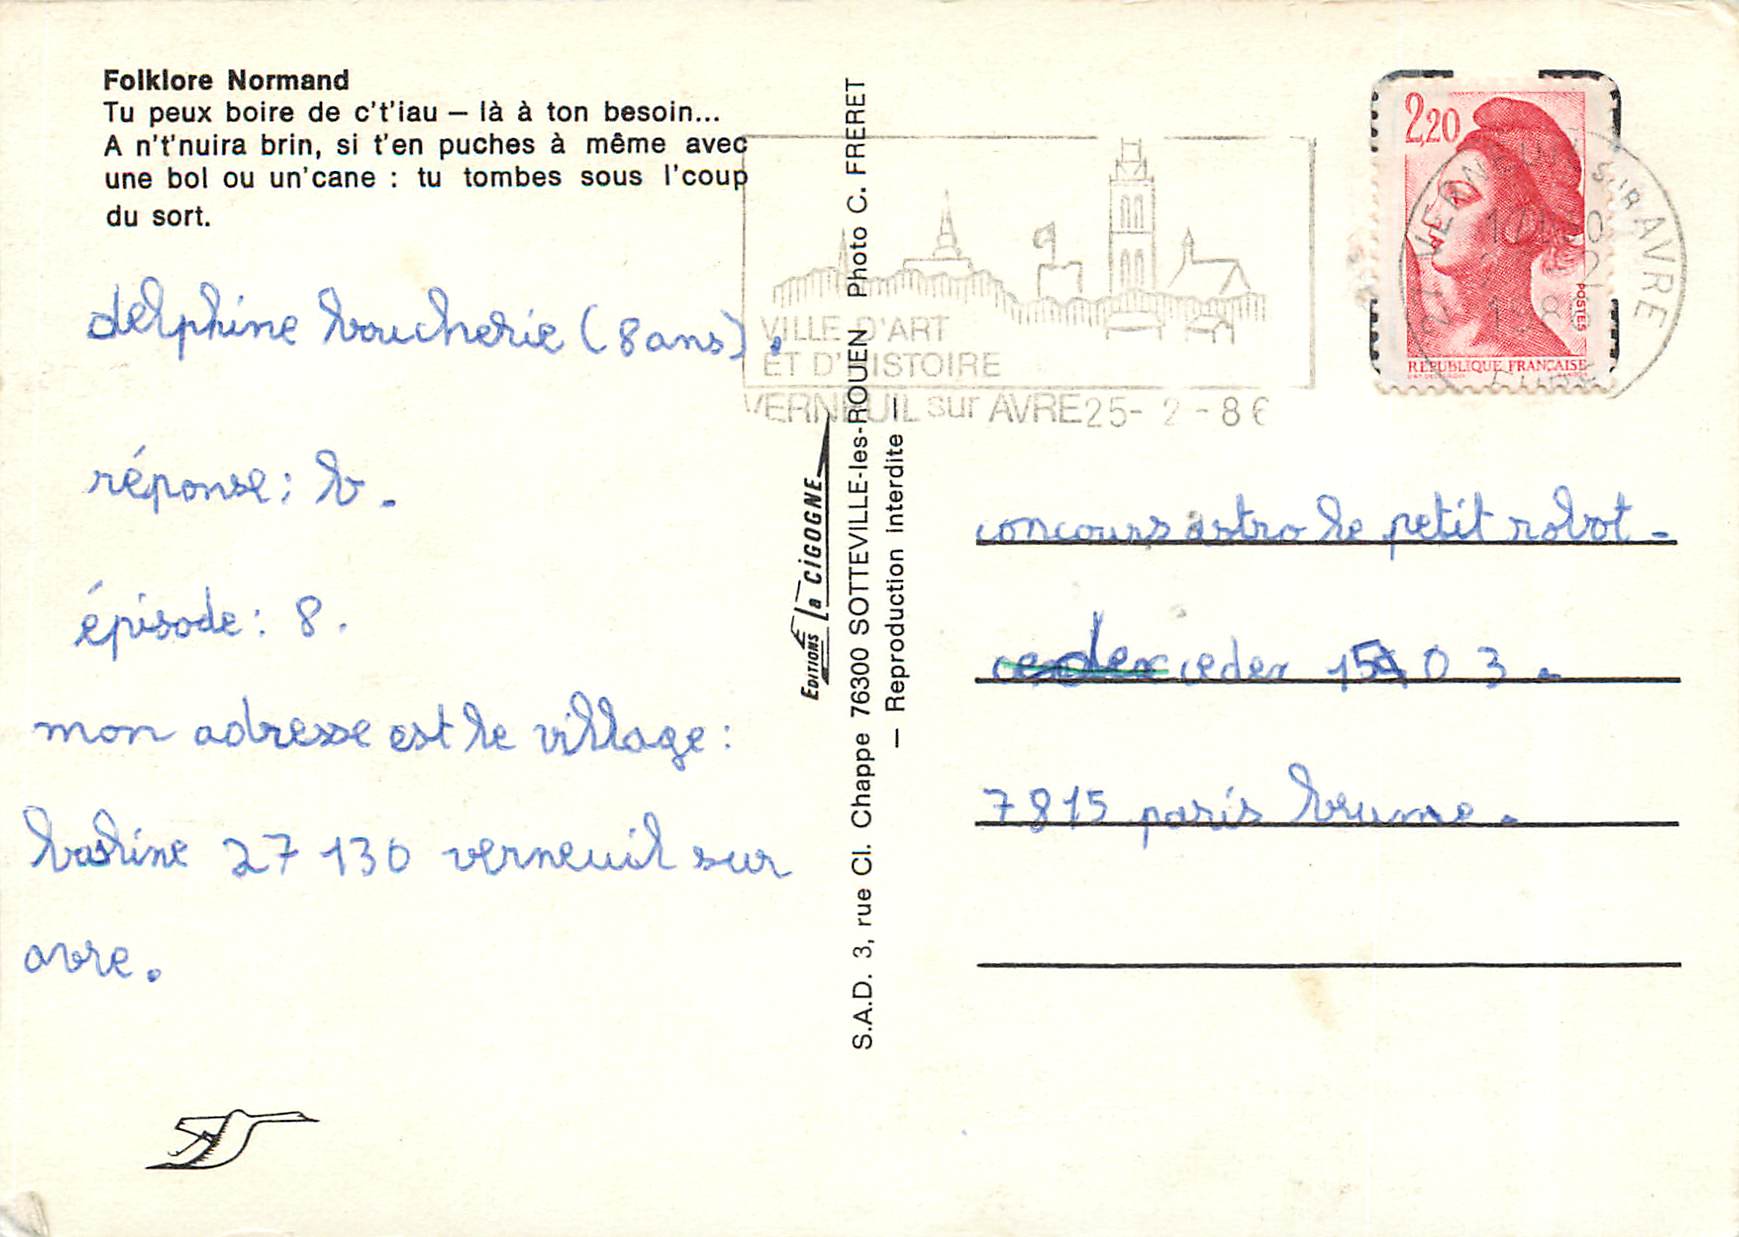 Folklore Normand
Tu peux boire de c't'iau — là à ton besoin...
A n't'nuira brin, si t'en puches à même avec
une bol ou un'cane : tu tombes sous l'coup
du sort.
delphine boucherie (8 ans).
réponse : b.
épisode : 8.
mon adresse est le village :
27 130 verneuil sur
avre.
Editions La CIGOGNE
S.A.D. 3, rue Cl. Chappe 76300 SOTTEVILLE-les-ROUEN Photo C. FRERET
— Reproduction interdite —
VILLE D'ART
ET D'HISTOIRE
VERNEUIL sur AVRE 25- 2 - 86
2,20
POSTES
REPUBLIQUE FRANÇAISE
27 VERNEUIL SUR AVRE
concours astro le petit robot -
cedex 15 0 3.
7815 paris brune.